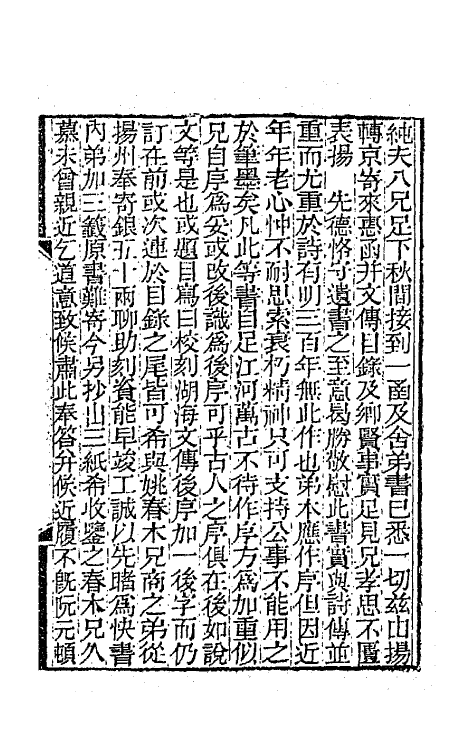 純夫八兄足下秋間接到一函及舍弟書已悉一切茲由揚
轉京寄來惠函幷文傳目錄及鄉賢事實足見兄孝思不匱
表揚　先德恪守遺書之至意曷勝敬慰此書實與詩傳並
重而尤重於詩有明三百年無此作也弟本應作序但因近
年年老心忡不耐思索衰朽精神只可支持公事不能用之
於筆墨矣凡此等書自足江河萬古不待作序方爲加重似
兄自序爲妥或改後識爲後序可乎古人之序俱在後如說
文等是也或題目寫曰校刻湖海文傳後序加一後字而仍
訂在前或次連於目錄之尾皆可希與姚春木兄商之弟從
揚州奉寄銀五十兩聊助刻資能早竣工誠以先睹爲快書
內弟加三籤原書難寄今另抄出三紙希收鑒之春木兄久
慕未曾親近乞道意致候肅此奉答幷候近履不旣阮元頓